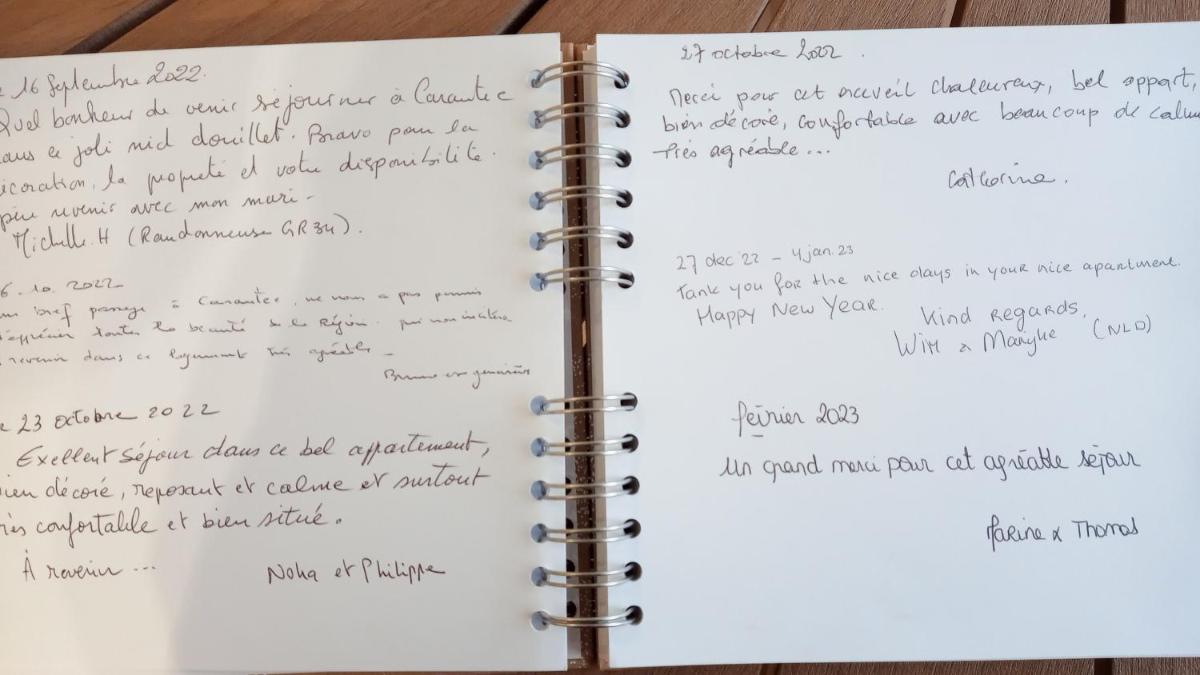 16 Septembre 2022.
Quel bonheur de venir séjourner à Carantec
dans ce joli nid douillet. Bravo pour la
décoration, la propreté et votre disponibilité.
revenir avec mon mari -
Michelle.H (Randonneuse GR34).
6.10.2022
un bref passage à Carantec, ne nous a pas permis
d'apprécier toutes la beauté de la Région.
revenir dans ce logement très agréable -
Bruno et
23 octobre 2022
Exellent séjour dans ce bel appartement,
bien décoré, reposant et calme et surtout
très confortable et bien situé.
À revenir ...
Noha et Philippe
27 octobre 2022.
Merci pour cet accueil chaleureux, bel appart,
bien décoré, confortable avec beaucoup de calme
Très agréable ...
Catherine.
27 dec '22 - 4 jan. 23
Tank you for the nice days in your nice apartment.
Happy New Year.
Kind Regards,
Wim & Marijke (NLD)
février 2023
Un grand merci pour cet agréable séjour
Marine & Thomas